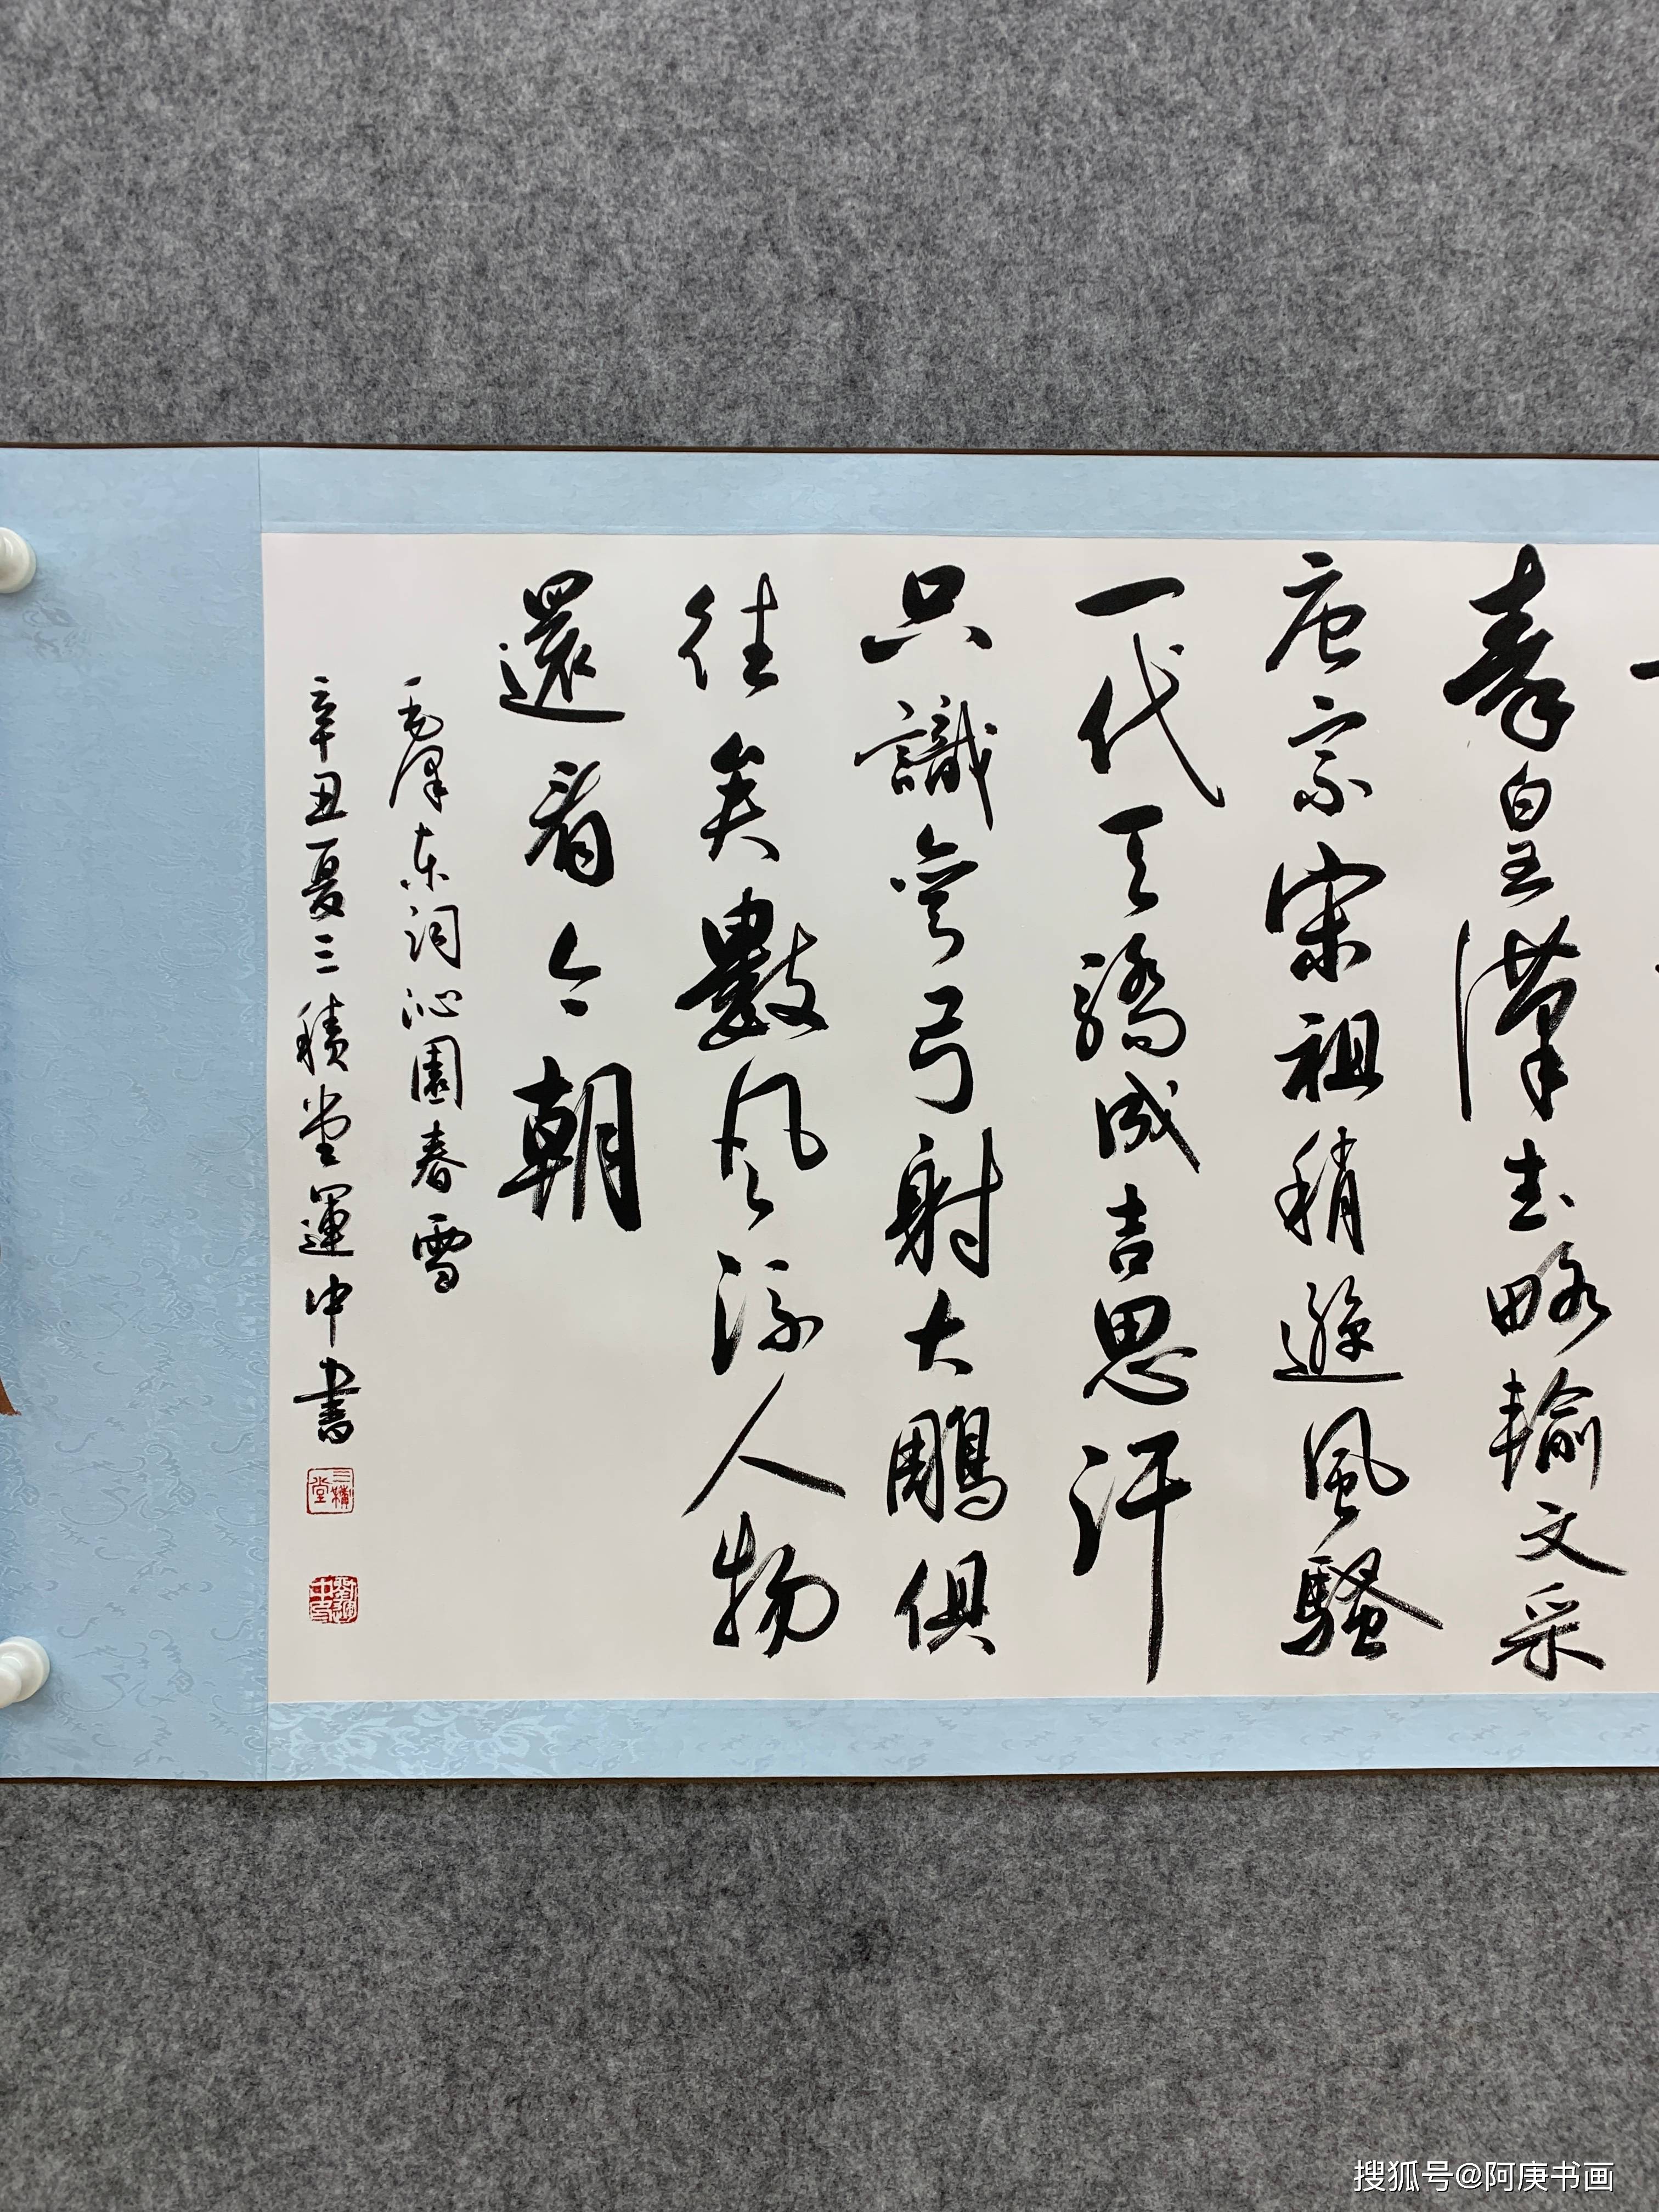 秦皇漢武略輸文采
唐宗宋祖稍遜風騷
一代天驕成吉思汗
只識彎弓射大鵰俱
往矣數風流人物
還看今朝
毛澤东詞沁園春雪
辛丑夏三積堂運中書
三積堂
搜狐号@阿庚书画